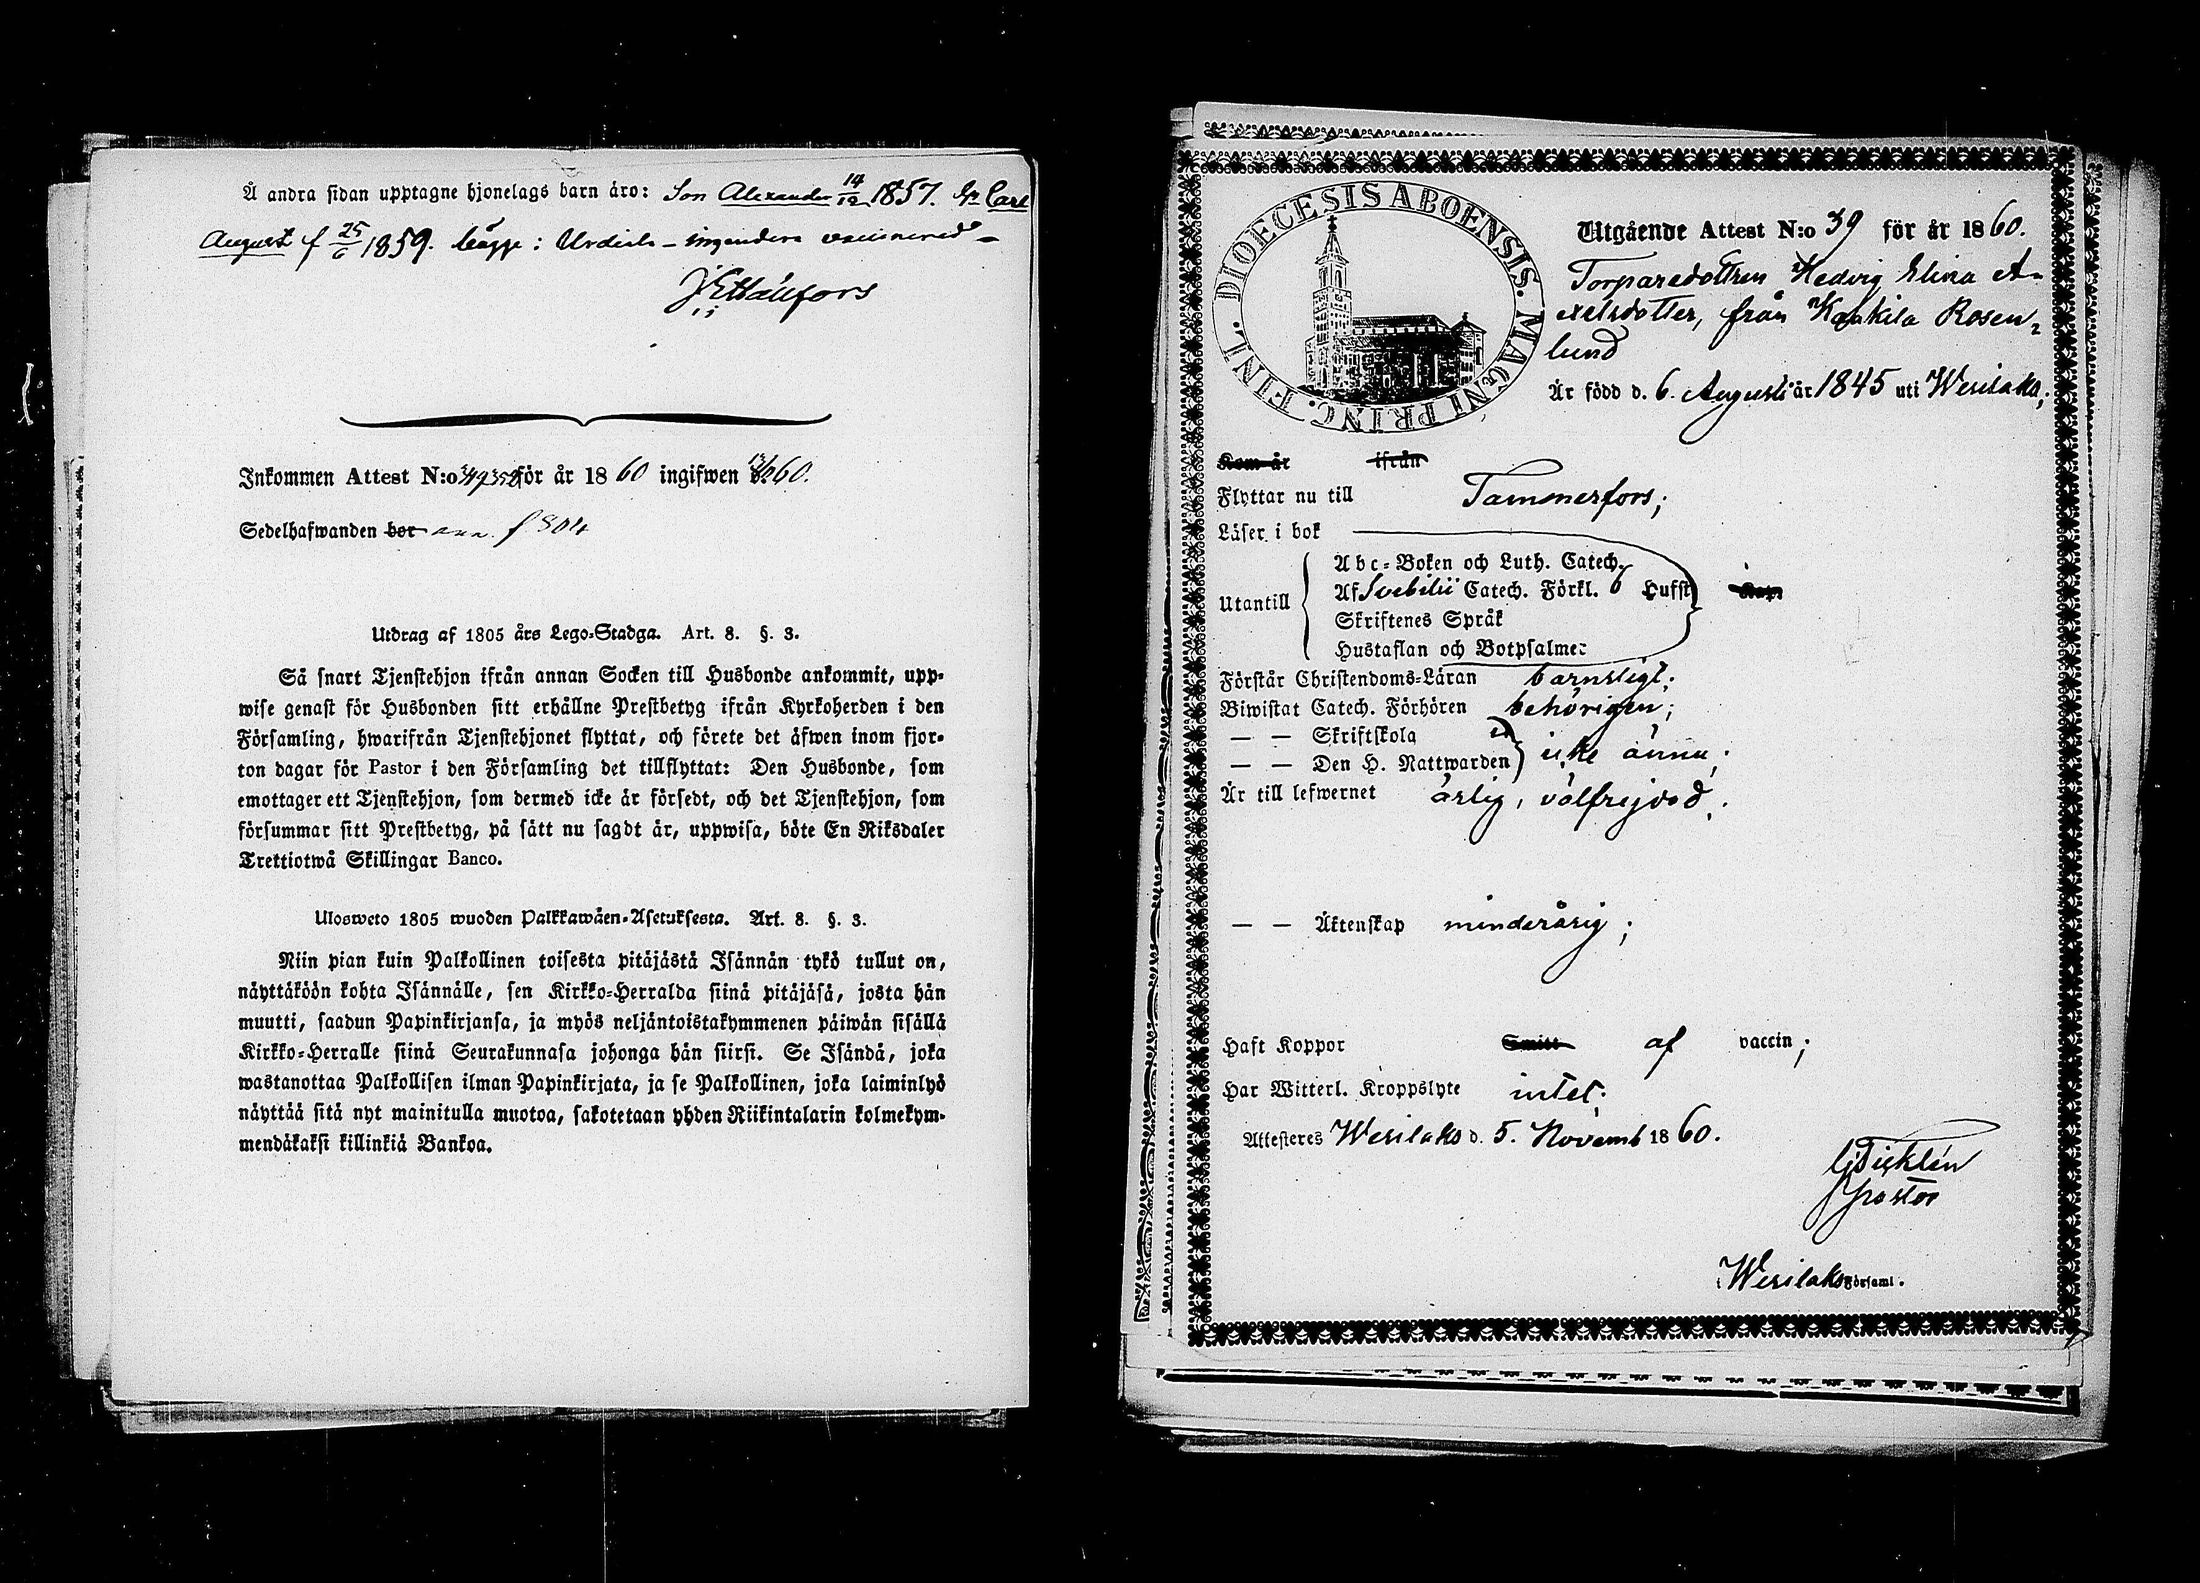 Å andra sidan upptagne hjonelags barn äro: Son Alexander 14/12 1857. & Carl
August f 25/6 1859. bägge: Urdiala - ingendera vaccinerad -
Inkommen Attest N:o 349 350 för år 1860 ingifwen 60.
Sedelhafwanden bor ann. f 804
Utdrag af 1805 års Lego-Stadga. Art. 8. §. 3.
Så snart Tjenstehjon ifrån annan Socken till Husbonde ankommit, upp-
wise genast för Husbonden sitt erhållne Prestbetyg ifrån Kyrkoherden i den
Församling, hwarifrån Tjenstehjonet flyttat, och förete det äfwen inom fjor-
ton dagar för Pastor i den Församling det tillflyttat: Den Husbonde, som
emottager ett Tjenstehjon, som dermed icke är försedt, och det Tjenstehjon, som
försummar sitt Prestbetyg, på sätt nu sagdt är, uppwisa, böte En Riksdaler
Trettiotwå Skillingar Banco.
Ulosweto 1805 wuoden Palkkawäen-Asetuksesta. Art. 8. §. 3.
Niin pian kuin Palkollinen toisesta pitäjästä Isännän tykö tullut on,
näyttäköön kohta Isännälle, sen Kirkko-Herralda siinä pitäjäsä, josta hän
muutti, saadun Papinkirjansa, ja myös neljäntoistakymmenen päiwän sisällä
Kirkko-Herralle siinä Seurakunnasa johonga hän siirsi. Se Isändä, joka
wastanottaa Palkollisen ilman Papinkirjata, ja se Palkollinen, joka laiminlyö
näyttää sitä nyt mainitulla muotoa, sakotetaan yhden Riikintalarin kolmekym-
mendäkaksi killinkiä Bankoa.
FINL. DIOECESIS ABOENSIS. MAGNI PRINC.
Utgående Attest N:o 39 för år 1860.
Torparedottren Hedvig Elina A-
exelsdotter, från Kaukila Rosen-
lund
Är född d. 6. Augusti år 1845 uti Wesilaks;
Kom år ifrån
Flyttar nu till Tammerfors;
Läser i bok
Abc-Boken och Luth. Catech.
Utantill Af Svebilii Catech. Förkl. 6 Hufst. Kap.
Skriftenes Språk
Hustaflan och Botpsalmer
Förstår Christendoms-Läran barnsligt;
Biwistat Catech. Förhören behörigen;
— — Skriftskola
— — Den H. Nattwarden icke ännu;
Är till lefwernet ärlig, välfrejdad;
— — Äktenskap minderårig;
Haft Koppor Smitt af vaccin;
Har Witterl. Kroppslyte intet;
Attesteres Wesilaks d. 5. Novemb 1860.
Pastor
Wesilaks Församl.